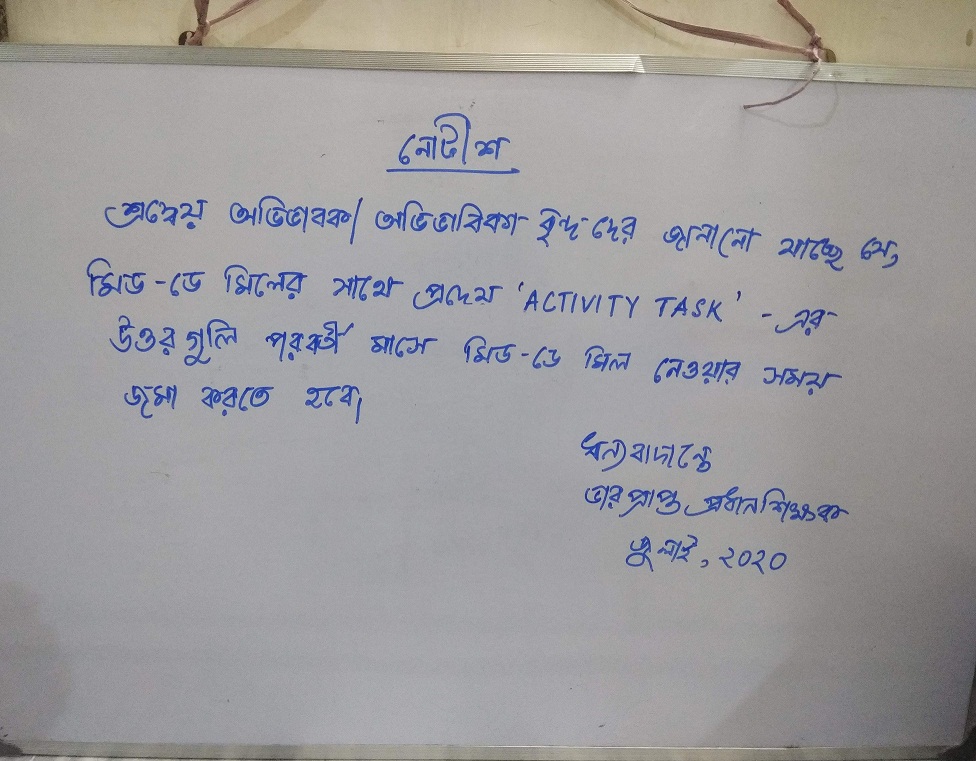 নোটীশ
শ্রদ্ধেয় অভিভাবক/অভিভাবিকা বৃন্দদের জানানো যাচ্ছে যে,
মিড-ডে মিলের সাথে প্রদেয় 'ACTIVITY TASK' - এর
উত্তরগুলি পরবর্তী মাসে মিড-ডে মিল নেওয়ার সময়
জমা করতে হবে।
ধন্যবাদান্তে
ভারপ্রাপ্ত প্রধানশিক্ষক
জুলাই, ২০২০